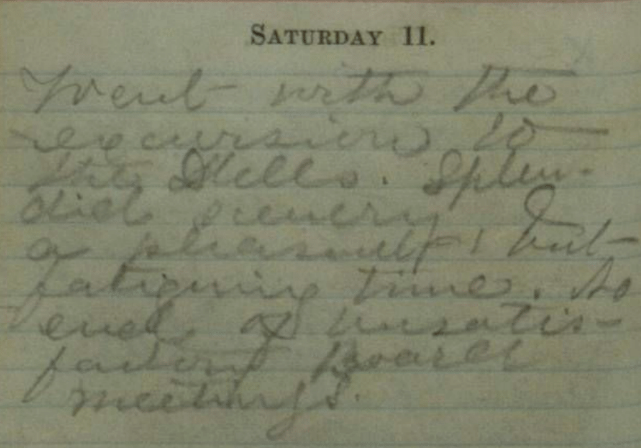 SATURDAY 11.
Went with the
excursion to
the Dells. Splen-
did scenery &
a pleasant, but
fatiguing time. So
ends a unsatis-
factory board
meetings.